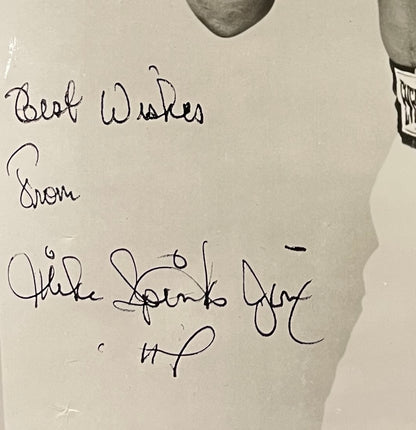 Best Wishes
From
Mike Spinks Jinx